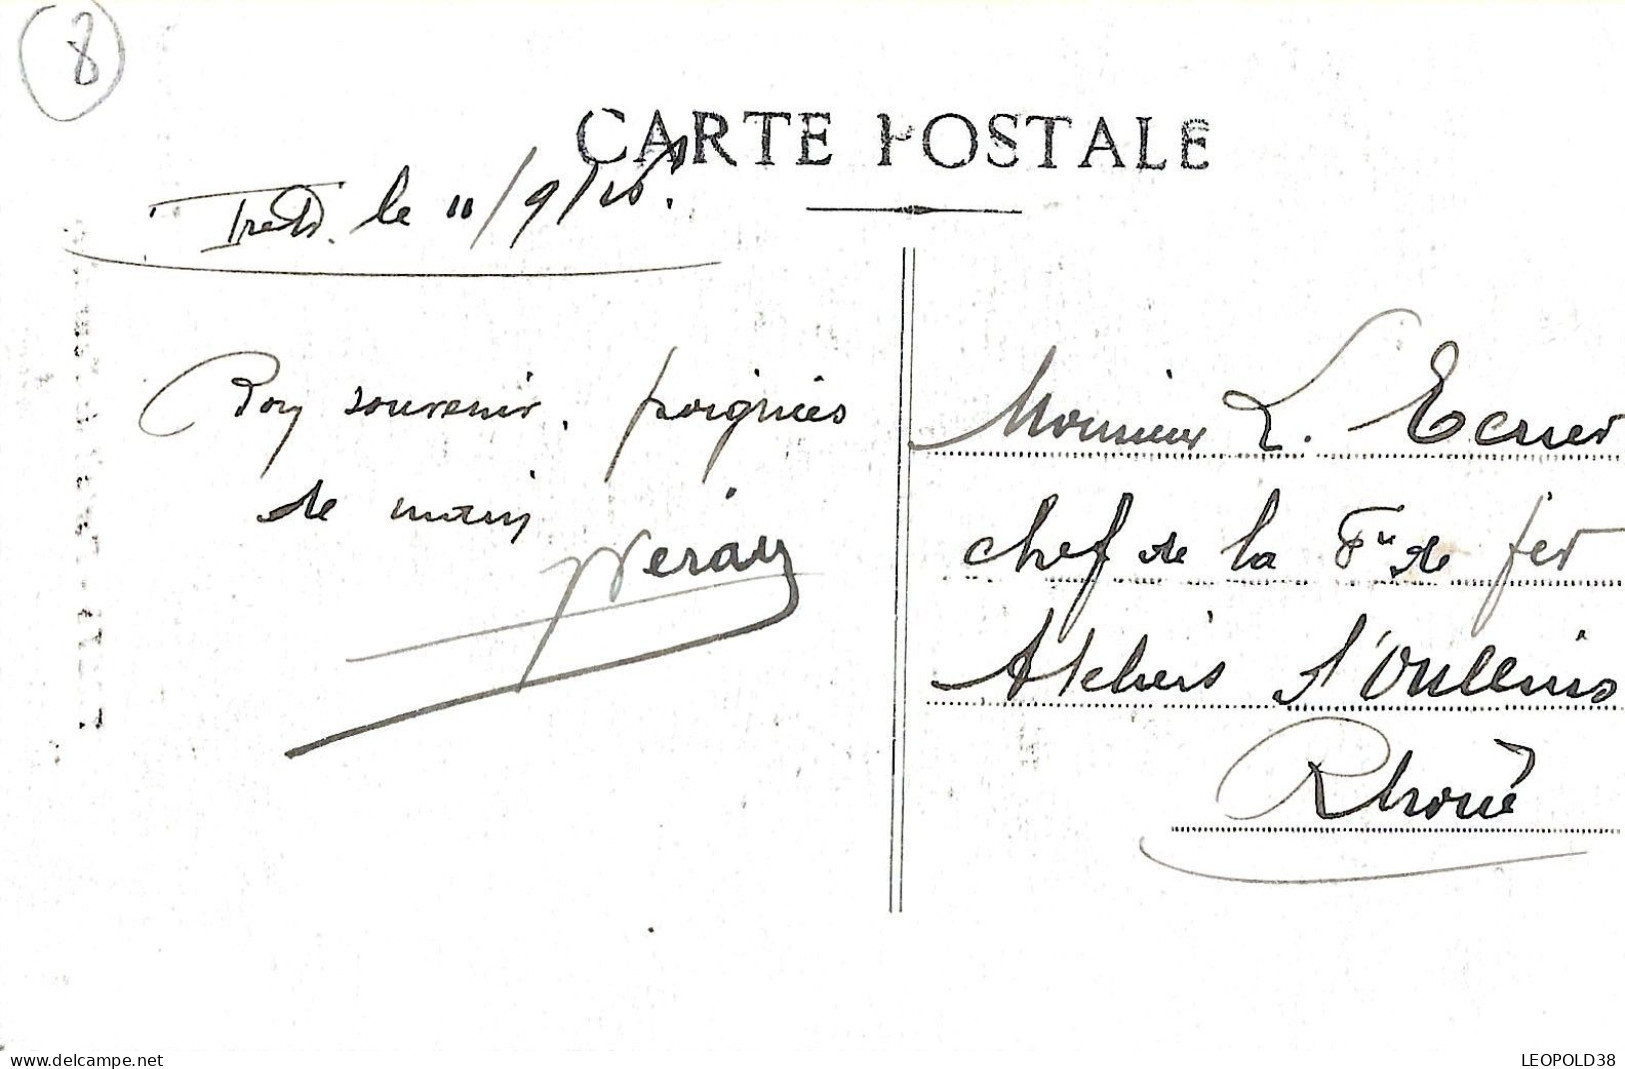 8
CARTE POSTALE
Trets. le 11/9/
Bon souvenir. poignées
de main
Monsieur L.
chef de la Fie de fer
Ateliers d'Oullins
Rhône
www.delcampe.net
LEOPOLD38